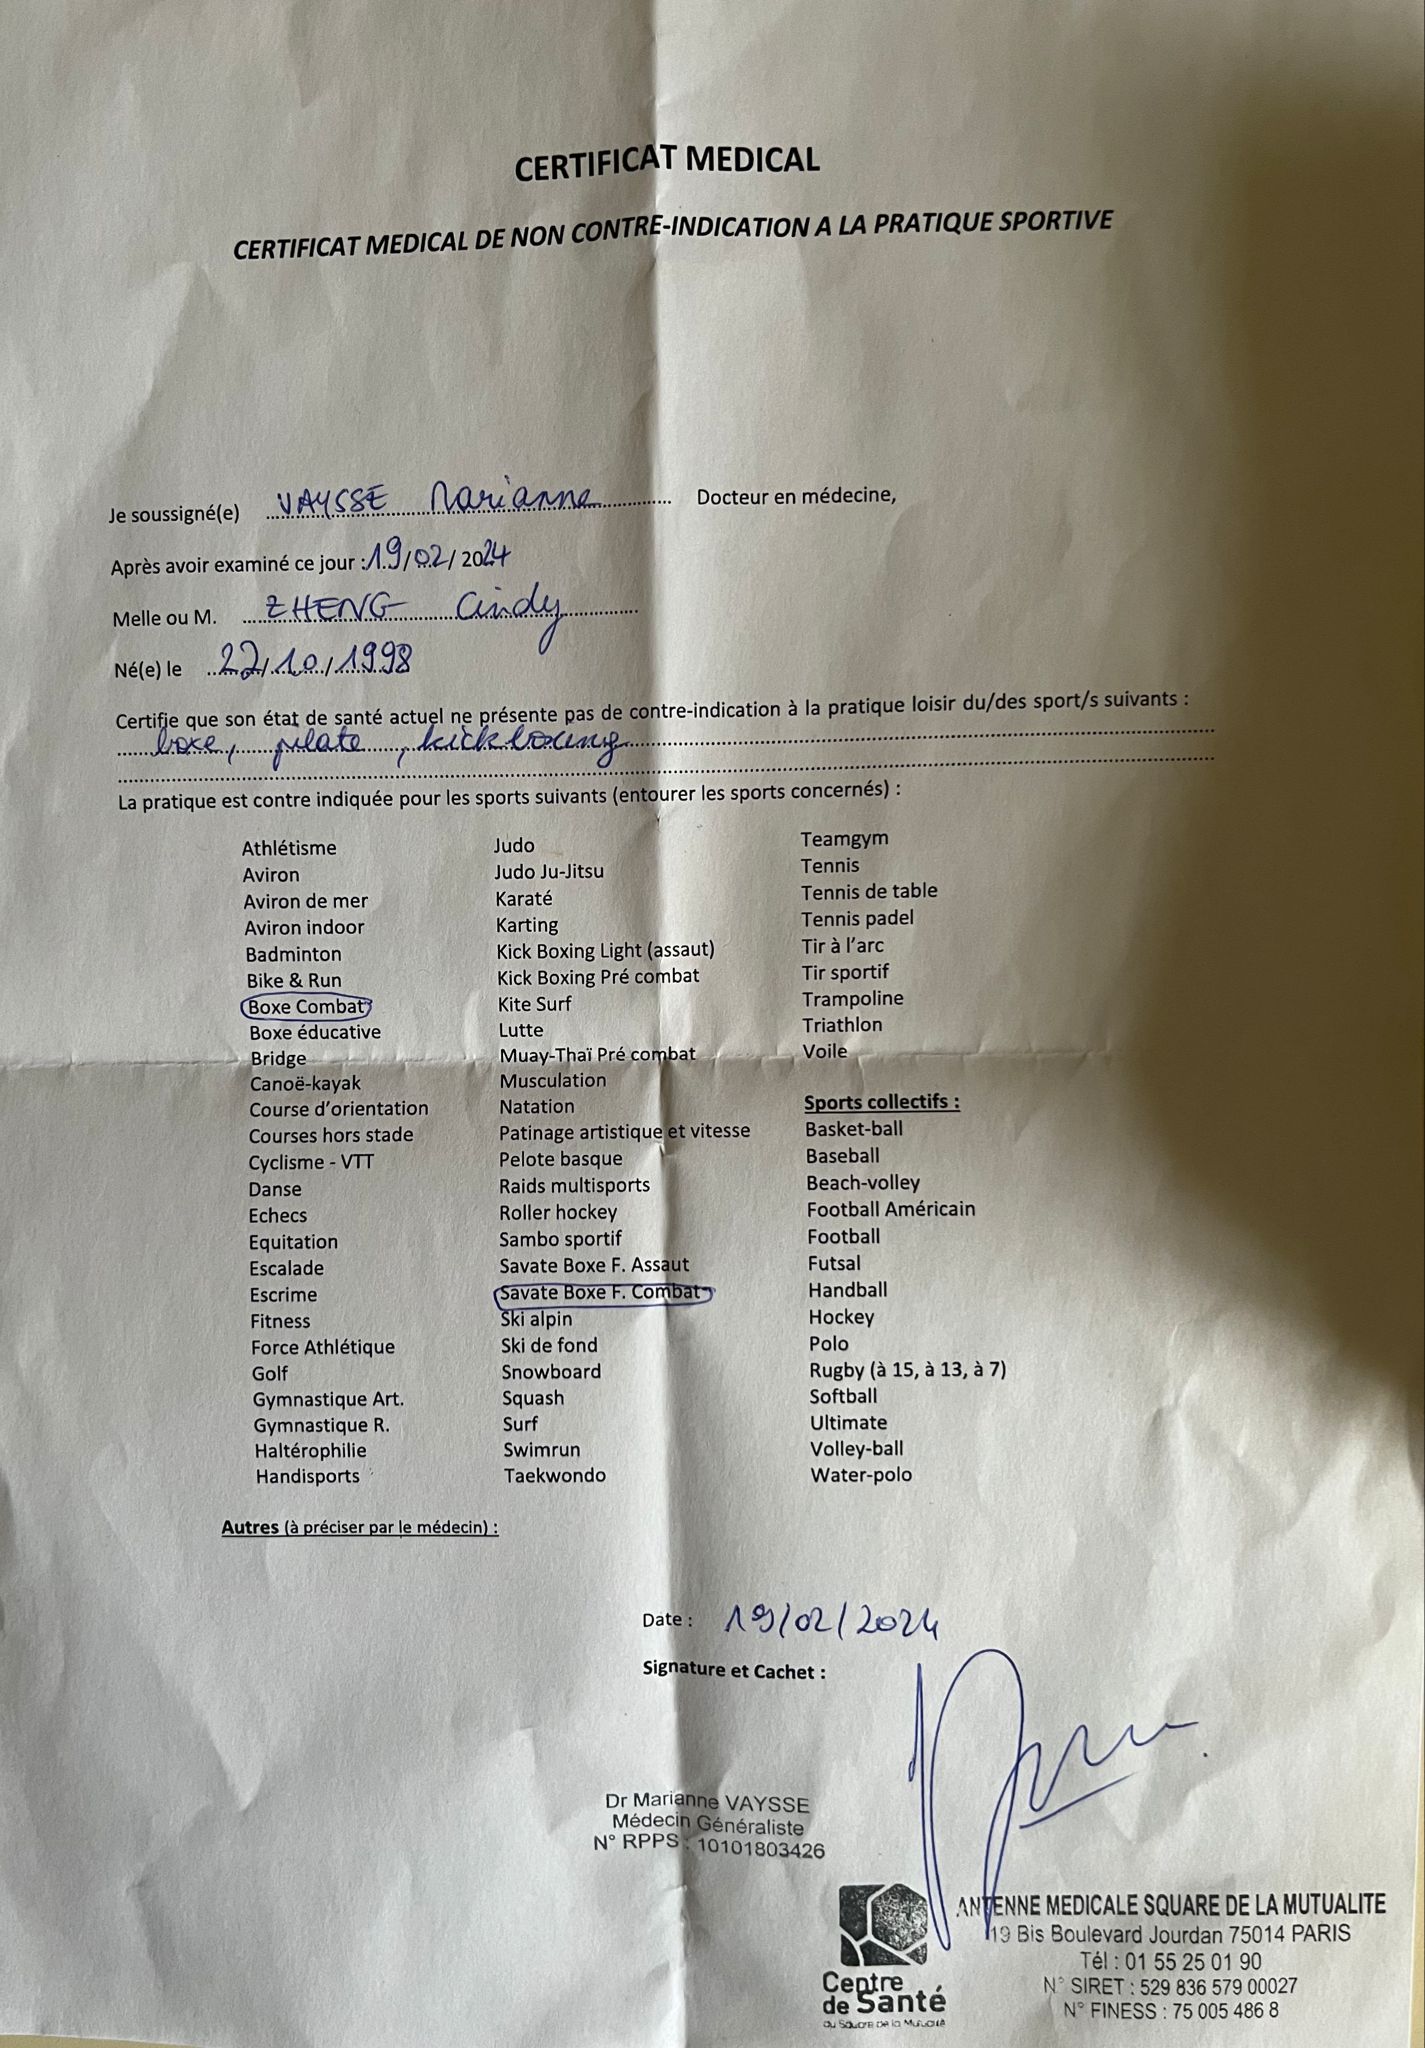 CERTIFICAT MEDICAL
CERTIFICAT MEDICAL DE NON CONTRE-INDICATION A LA PRATIQUE SPORTIVE
Je soussigné(e) VAYSSE Marianne Docteur en médecine,
Après avoir examiné ce jour : 19/02/2024
Melle ou M. ZHENG Cindy
Né(e) le 22/10/1998
Certifie que son état de santé actuel ne présente pas de contre-indication à la pratique loisir du/des sport/s suivants :
boxe, pilate, kickboxing
La pratique est contre indiquée pour les sports suivants (entourer les sports concernés) :
Athlétisme
Aviron
Aviron de mer
Aviron indoor
Badminton
Bike & Run
Boxe Combat
Boxe éducative
Bridge
Canoë-kayak
Course d'orientation
Courses hors stade
Cyclisme - VTT
Danse
Echecs
Equitation
Escalade
Escrime
Fitness
Force Athlétique
Golf
Gymnastique Art.
Gymnastique R.
Haltérophilie
Handisports
Judo
Judo Ju-Jitsu
Karaté
Karting
Kick Boxing Light (assaut)
Kick Boxing Pré combat
Kite Surf
Lutte
Muay-Thaï Pré combat
Musculation
Natation
Patinage artistique et vitesse
Pelote basque
Raids multisports
Roller hockey
Sambo sportif
Savate Boxe F. Assaut
Savate Boxe F. Combat
Ski alpin
Ski de fond
Snowboard
Squash
Surf
Swimrun
Taekwondo
Teamgym
Tennis
Tennis de table
Tennis padel
Tir à l'arc
Tir sportif
Trampoline
Triathlon
Voile
Sports collectifs :
Basket-ball
Baseball
Beach-volley
Football Américain
Football
Futsal
Handball
Hockey
Polo
Rugby (à 15, à 13, à 7)
Softball
Ultimate
Volley-ball
Water-polo
Autres (à préciser par le médecin) :
Date : 19/02/2024
Signature et Cachet :
Dr Marianne VAYSSE
Médecin Généraliste
N° RPPS : 10101803426
Centre
de Santé
du Square de la Mutualité
ANTENNE MEDICALE SQUARE DE LA MUTUALITE
19 Bis Boulevard Jourdan 75014 PARIS
Tél : 01 55 25 01 90
N° SIRET : 529 836 579 00027
N° FINESS : 75 005 486 8